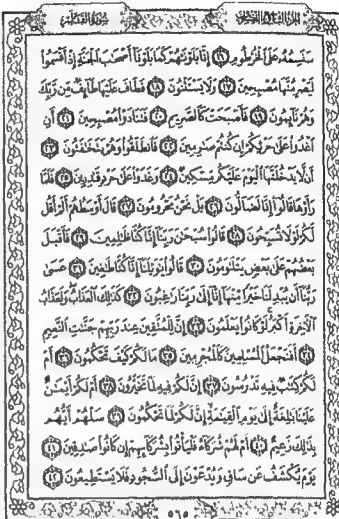 الجزء التاسع والعشرون سورة القلم
سَنَسِمُهُ عَلَى الْخُرْطُومِ ١٦ إِنَّا بَلَوْنَٰهُمْ كَمَا بَلَوْنَا أَصْحَٰبَ الْجَنَّةِ إِذْ أَقْسَمُوا
لَيَصْرِمُنَّهَا مُصْبِحِينَ ١٧ وَلَا يَسْتَثْنُونَ ١٨ فَطَافَ عَلَيْهَا طَآئِفٌ مِّن رَّبِّكَ
وَهُمْ نَآئِمُونَ ١٩ فَأَصْبَحَتْ كَالصَّرِيمِ ٢٠ فَتَنَادَوْا مُصْبِحِينَ ٢١ أَنِ
اغْدُوا عَلَىٰ حَرْثِكُمْ إِن كُنتُمْ صَٰرِمِينَ ٢٢ فَانطَلَقُوا وَهُمْ يَتَخَٰفَتُونَ ٢٣
أَن لَّا يَدْخُلَنَّهَا الْيَوْمَ عَلَيْكُم مِّسْكِينٌ ٢٤ وَغَدَوْا عَلَىٰ حَرْدٍ قَٰدِرِينَ ٢٥ فَلَمَّا
رَأَوْهَا قَالُوا إِنَّا لَضَآلُّونَ ٢٦ بَلْ نَحْنُ مَحْرُومُونَ ٢٧ قَالَ أَوْسَطُهُمْ أَلَمْ أَقُل
لَّكُمْ لَوْلَا تُسَبِّحُونَ ٢٨ قَالُوا سُبْحَٰنَ رَبِّنَا إِنَّا كُنَّا ظَٰلِمِينَ ٢٩ فَأَقْبَلَ
بَعْضُهُمْ عَلَىٰ بَعْضٍ يَتَلَٰوَمُونَ ٣٠ قَالُوا يَٰوَيْلَنَا إِنَّا كُنَّا طَٰغِينَ ٣١ عَسَىٰ
رَبُّنَا أَن يُبْدِلَنَا خَيْرًا مِّنْهَا إِنَّا إِلَىٰ رَبِّنَا رَٰغِبُونَ ٣٢ كَذَٰلِكَ الْعَذَابُ وَلَعَذَابُ
الْآخِرَةِ أَكْبَرُ لَوْ كَانُوا يَعْلَمُونَ ٣٣ إِنَّ لِلْمُتَّقِينَ عِندَ رَبِّهِمْ جَنَّٰتِ النَّعِيمِ
٣٤ أَفَنَجْعَلُ الْمُسْلِمِينَ كَالْمُجْرِمِينَ ٣٥ مَا لَكُمْ كَيْفَ تَحْكُمُونَ ٣٦ أَمْ
لَكُمْ كِتَٰبٌ فِيهِ تَدْرُسُونَ ٣٧ إِنَّ لَكُمْ فِيهِ لَمَا تَخَيَّرُونَ ٣٨ أَمْ لَكُمْ أَيْمَٰنٌ
عَلَيْنَا بَٰلِغَةٌ إِلَىٰ يَوْمِ الْقِيَٰمَةِ إِنَّ لَكُمْ لَمَا تَحْكُمُونَ ٣٩ سَلْهُمْ أَيُّهُم
بِذَٰلِكَ زَعِيمٌ ٤٠ أَمْ لَهُمْ شُرَكَآءُ فَلْيَأْتُوا بِشُرَكَآئِهِمْ إِن كَانُوا صَٰدِقِينَ ٤١
يَوْمَ يُكْشَفُ عَن سَاقٍ وَيُدْعَوْنَ إِلَى السُّجُودِ فَلَا يَسْتَطِيعُونَ ٤٢
٥٦٥